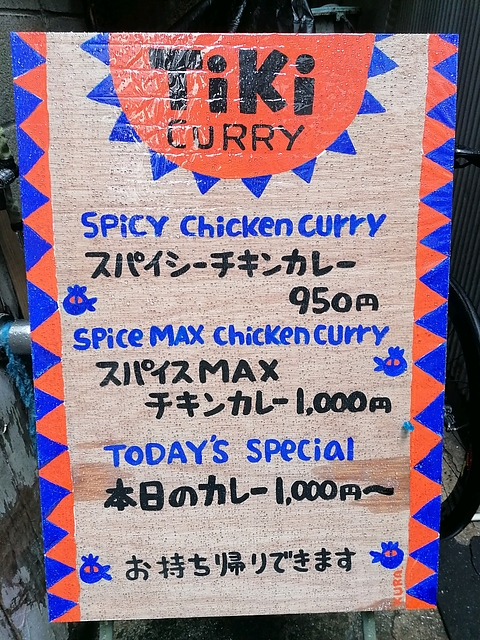 TiKi
CURRY
SPiCY Chicken CURRY
スパイシーチキンカレー
950円
SPice MAX chicken CURRY
スパイスMAX
チキンカレー1,000円
TODAY'S SPecial
本日のカレー1,000円〜
お持ち帰りできます
KURA